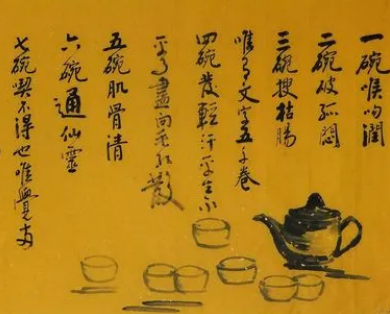 一碗喉吻潤
二碗破孤悶
三碗搜枯腸
唯有文字五千卷
四碗發輕汗平生不
平事盡向毛孔散
五碗肌骨清
六碗通仙靈
七碗喫不得也唯覺兩